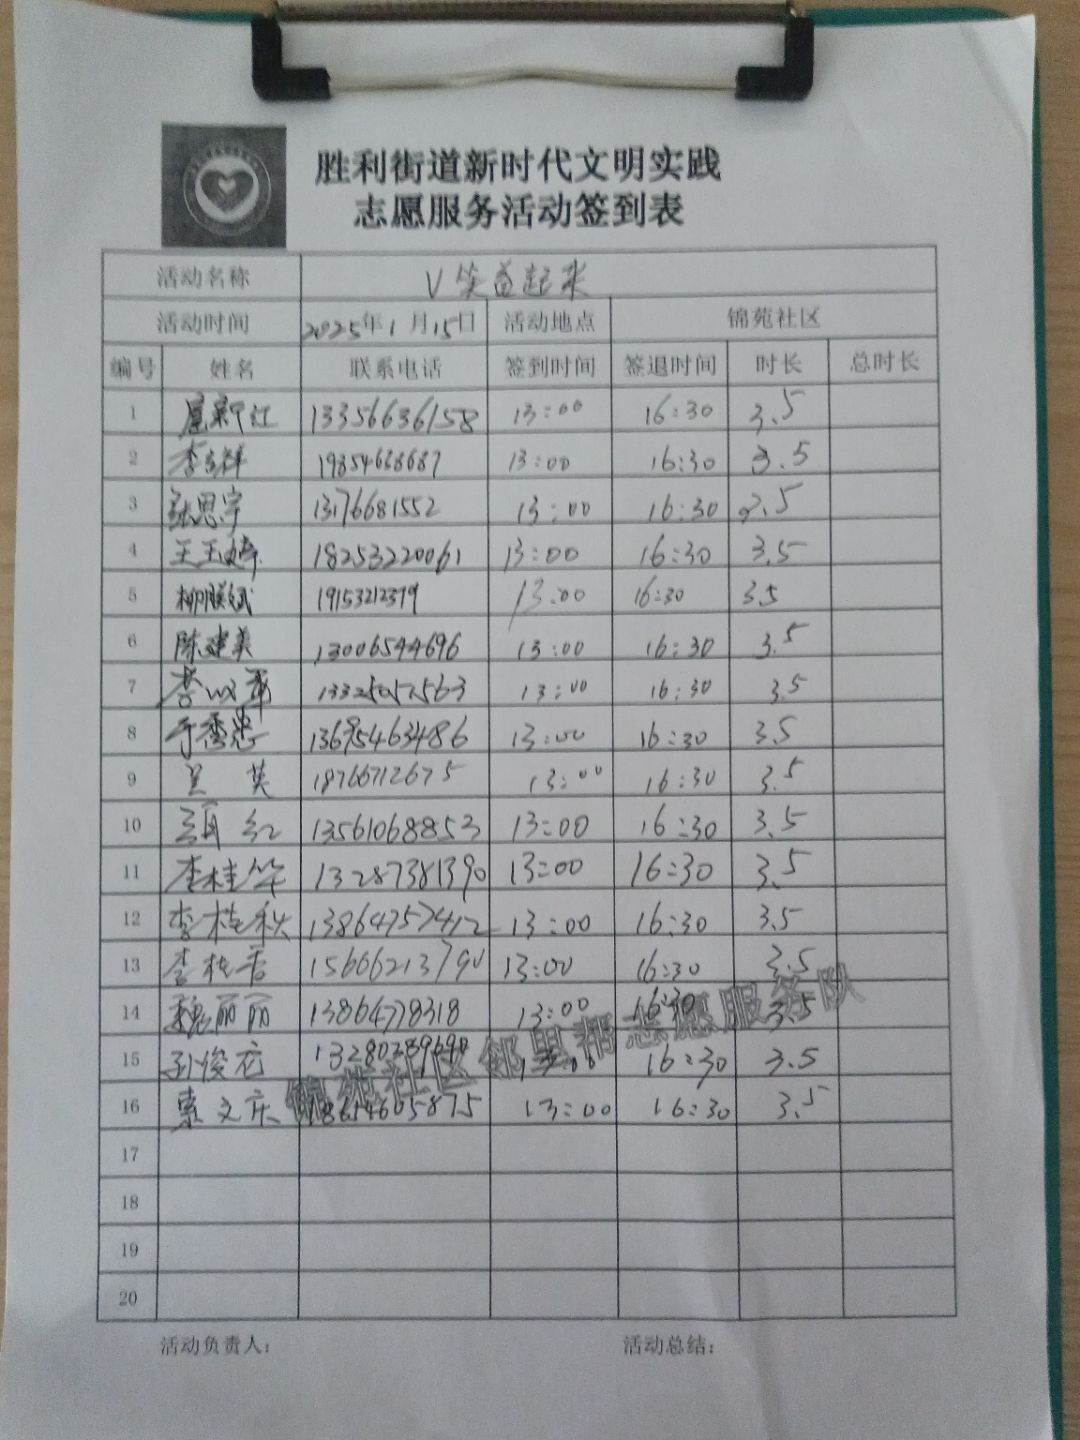 胜利街道新时代文明实践
志愿服务活动签到表
活动名称 V笑益起来
活动时间 2025年1月15日 活动地点 锦苑社区
编号 姓名 联系电话 签到时间 签退时间 时长 总时长
1 13356636158 13:00 16:30 3.5
2 李吉祥 19854668687 13:00 16:30 3.5
3 张思宇 13176681552 13:00 16:30 3.5
4 王玉婷 18253220061 13:00 16:30 3.5
5 13:00 16:30 3.5
6 陈建美 13006544696 13:00 16:30 3.5
7 13:00 16:30 3.5
8 于秀忠 13695463486 13:00 16:30 3.5
9 英 18766712675 13:00 16:30 3.5
10 红 13561068853 13:00 16:30 3.5
11 李桂华 13287381390 13:00 16:30 3.5
12 李桂秋 13864757412 13:00 16:30 3.5
13 李桂香 15606213790 13:00 16:30 3.5
14 魏丽丽 13864778318 13:00 16:30 3.5
15 13:00 16:30 3.5
16 13:00 16:30 3.5
锦苑社区邻里帮志愿服务队
17
18
19
20
活动负责人: 活动总结: